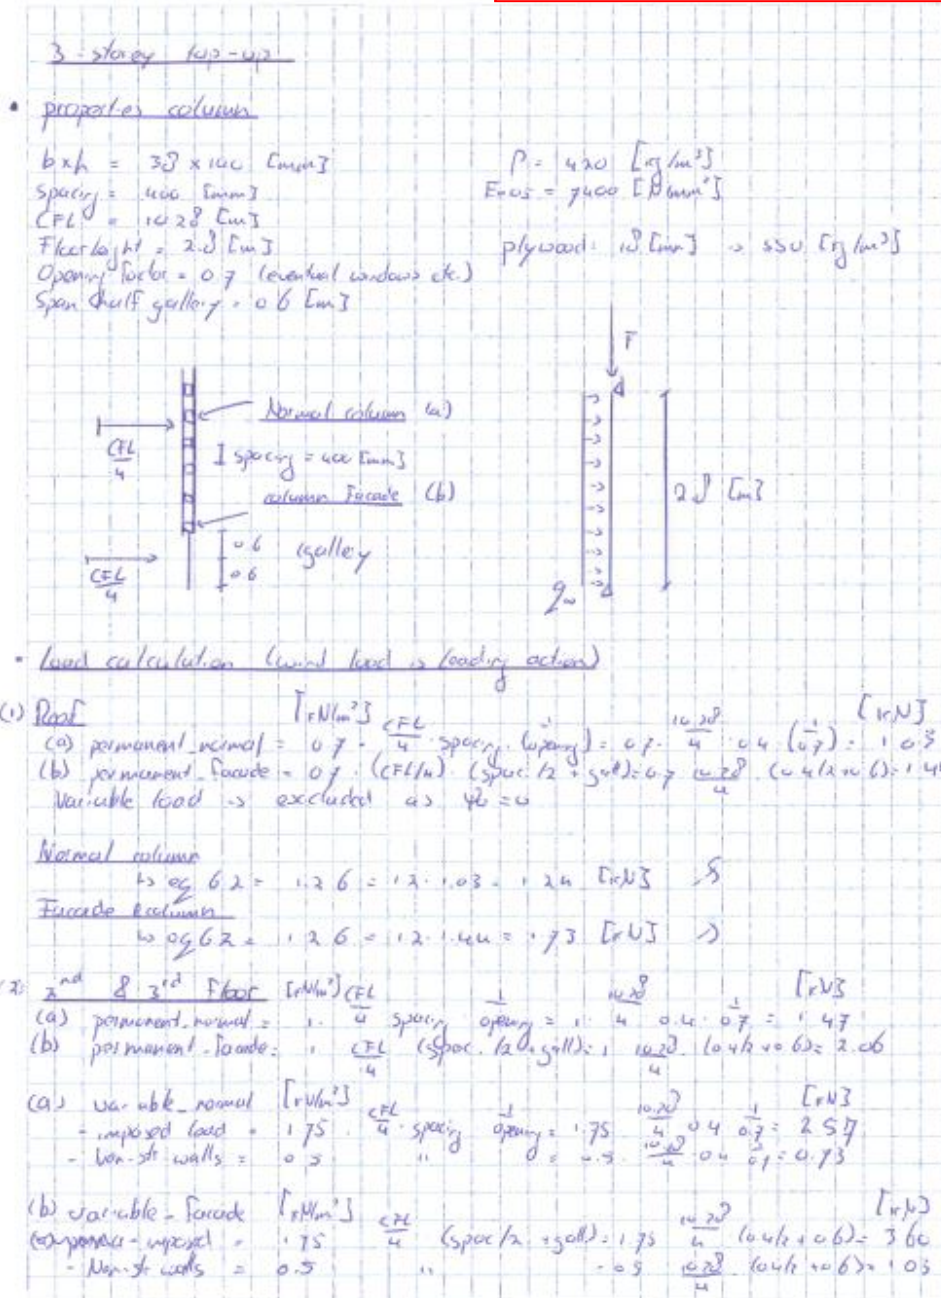 3-storey top-up
• properties column
b x h = 38 x 140 [mm]
ρ = 420 [kg/m³]
spacing = 400 [mm]
E0.05 = 7400 [N/mm²]
CFL = 10.28 [m]
Floor height = 2.8 [m]
plywood: 18 [mm] → 550 [kg/m³]
Opening factor = 0.7 (eventual windows etc.)
Span half gallery = 0.6 [m]
F
Normal column (a)
CFL/4
spacing = 400 [mm]
column facade (b)
2.8 [m]
0.6
gallery
CFL/4
0.6
qw
• load calculation (wind load is leading action)
(1) Roof [kN/m²] [kN]
(a) permanent_normal = 0.7 · CFL/4 · spacing · (1/opening) = 0.7 · 10.28/4 · 0.4 · (1/0.7) = 1.03
(b) permanent_facade = 0.7 · (CFL/4) · (spac./2 + gall) = 0.7 · 10.28/4 · (0.4/2 + 0.6) = 1.44
Variable load → excluded as ψ0 = 0
Normal column
↳ eq 6.2 = 1.2 G = 1.2 · 1.03 = 1.24 [kN]
Facade column
↳ eq 6.2 = 1.2 G = 1.2 · 1.44 = 1.73 [kN]
(2) 2nd & 3rd Floor [kN/m²] [kN]
(a) permanent_normal = 1 · CFL/4 · spacing · 1/opening = 1 · 10.28/4 · 0.4 · 1/0.7 = 1.47
(b) permanent_facade = 1 · CFL/4 · (spac./2 + gall) = 1 · 10.28/4 · (0.4/2 + 0.6) = 2.06
(a) variable_normal [kN/m²] [kN]
- imposed load = 1.75 · CFL/4 · spacing · 1/opening = 1.75 · 10.28/4 · 0.4 · 1/0.7 = 2.57
- Non-str walls = 0.5 " = 0.5 · 10.28/4 · 0.4 · 1/0.7 = 0.73
(b) variable_facade [kN/m²] [kN]
- imposed = 1.75 · CFL/4 · (spac/2 + gall) = 1.75 · 10.28/4 · (0.4/2 + 0.6) = 3.60
- Non-str walls = 0.5 " = 0.5 · 10.28/4 · (0.4/2 + 0.6) = 1.03